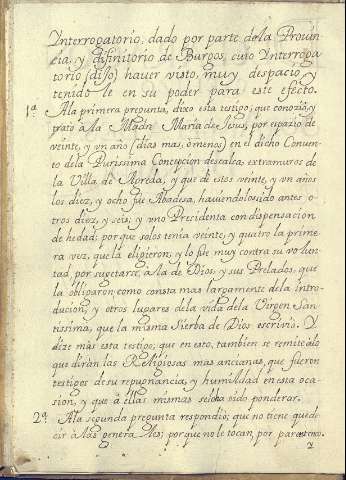 Ynterrogatorio, dado por parte de la Provin
cia, y difinitorio de Burgos, cuio Ynterroga
torio (dijo) haver visto, muy despacio, y
tenido le en su poder para este efecto.
1ª A la primera pregunta, dixo esta testigo; que conozio, y
trato a la Madre Maria de Jesus, por espazio de
veinte, y un año (dias mas, ò menos) en el dicho Conven
to de la Purissima Concepcion descalza, extramuros de
la Villa de Agreda, y que de estos veinte, y un años
los diez, y ocho fue Abadesa, haviendolo sido antes o
tros diez, y seis, y uno Presidenta con dispensacion
de hedad; por que solos tenia veinte, y quatro la prime
ra vez, que la eligieron; y lo fue muy contra su volun
tad, por sugetarse, a la de Dios y sus Prelados, que
la obligaron; como consta mas largamente de la intro
duccion, y otros lugares de la vida de la Virgen San
tissima, que la misma Sierba de Dios escrivio. Y
dize mas esta testigo; que en esto, tambien se remite a lo
que diran las Religiosas mas ancianas, que fueron
testigos de su repugnancia, y humildad en esta oca
sion, y que à ellas mismas se lo ha oido ponderar.
2ª A la segunda pregunta respondio; que no tiene que de
cir a las generales; por que no le tocan, por parentesco.